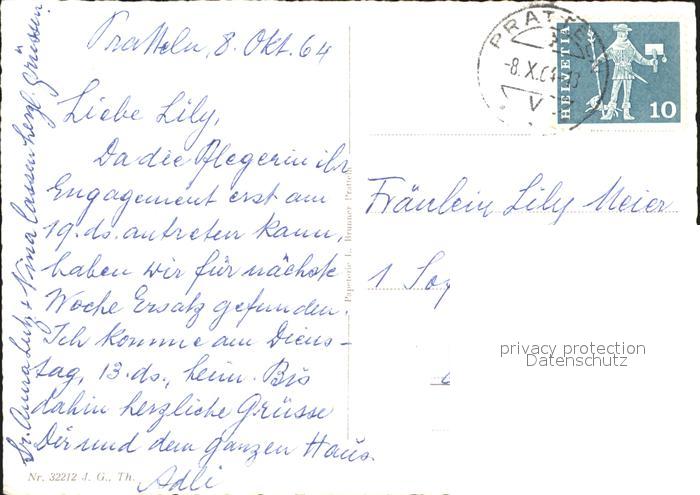 Pratteln, 8. Okt. 64
Liebe Lily,
Da die Pflegerin ihr
Engagement erst am
19. ds. antreten kann,
haben wir für nächste
Woche Ersatz gefunden.
Ich komme am Diens-
tag, 13. ds., heim. Bis
dahin herzliche Grüsse
Dir und dem ganzen Haus.
Adli
Sr. Anna Lutz + Nina lassen herzl. grüssen.
Nr. 32212 J. G., Th.
Papeterie L. Brunner Pratteln
PRATTELN
-8.X.64
HELVETIA
10
Fräulein Lily Meier
privacy protection
Datenschutz